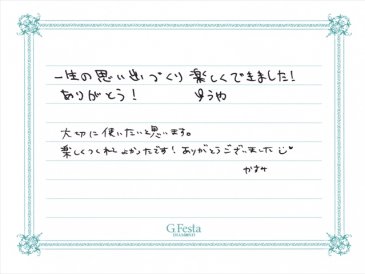 一生の思い出づくり楽しくできました!
ありがとう! ゆうや
大切に使いたいと思います。
楽しくつくれてよかったです!ありがとうございました
かすみ
G.Festa